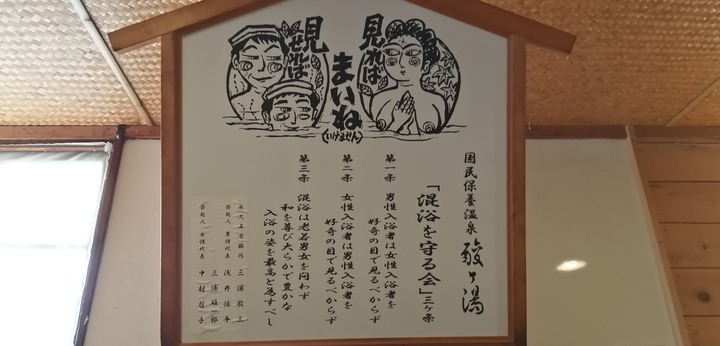 見れば
見せれば
まいね
(いけません)
国民保養温泉 酸ヶ湯
「混浴を守る会」三ヶ条
第一条 男性入浴者は女性入浴者を
好奇の目で見るべからず
第二条 女性入浴者は男性入浴者を
好奇の目で見るべからず
第三条 混浴は老若男女を問わず
和を尊び大らかで豊かな
入浴の姿を最高と為すべし
三浦敬三
発起人 男性代表 浅井慎平
三浦雄一郎
発起人 女性代表 中村